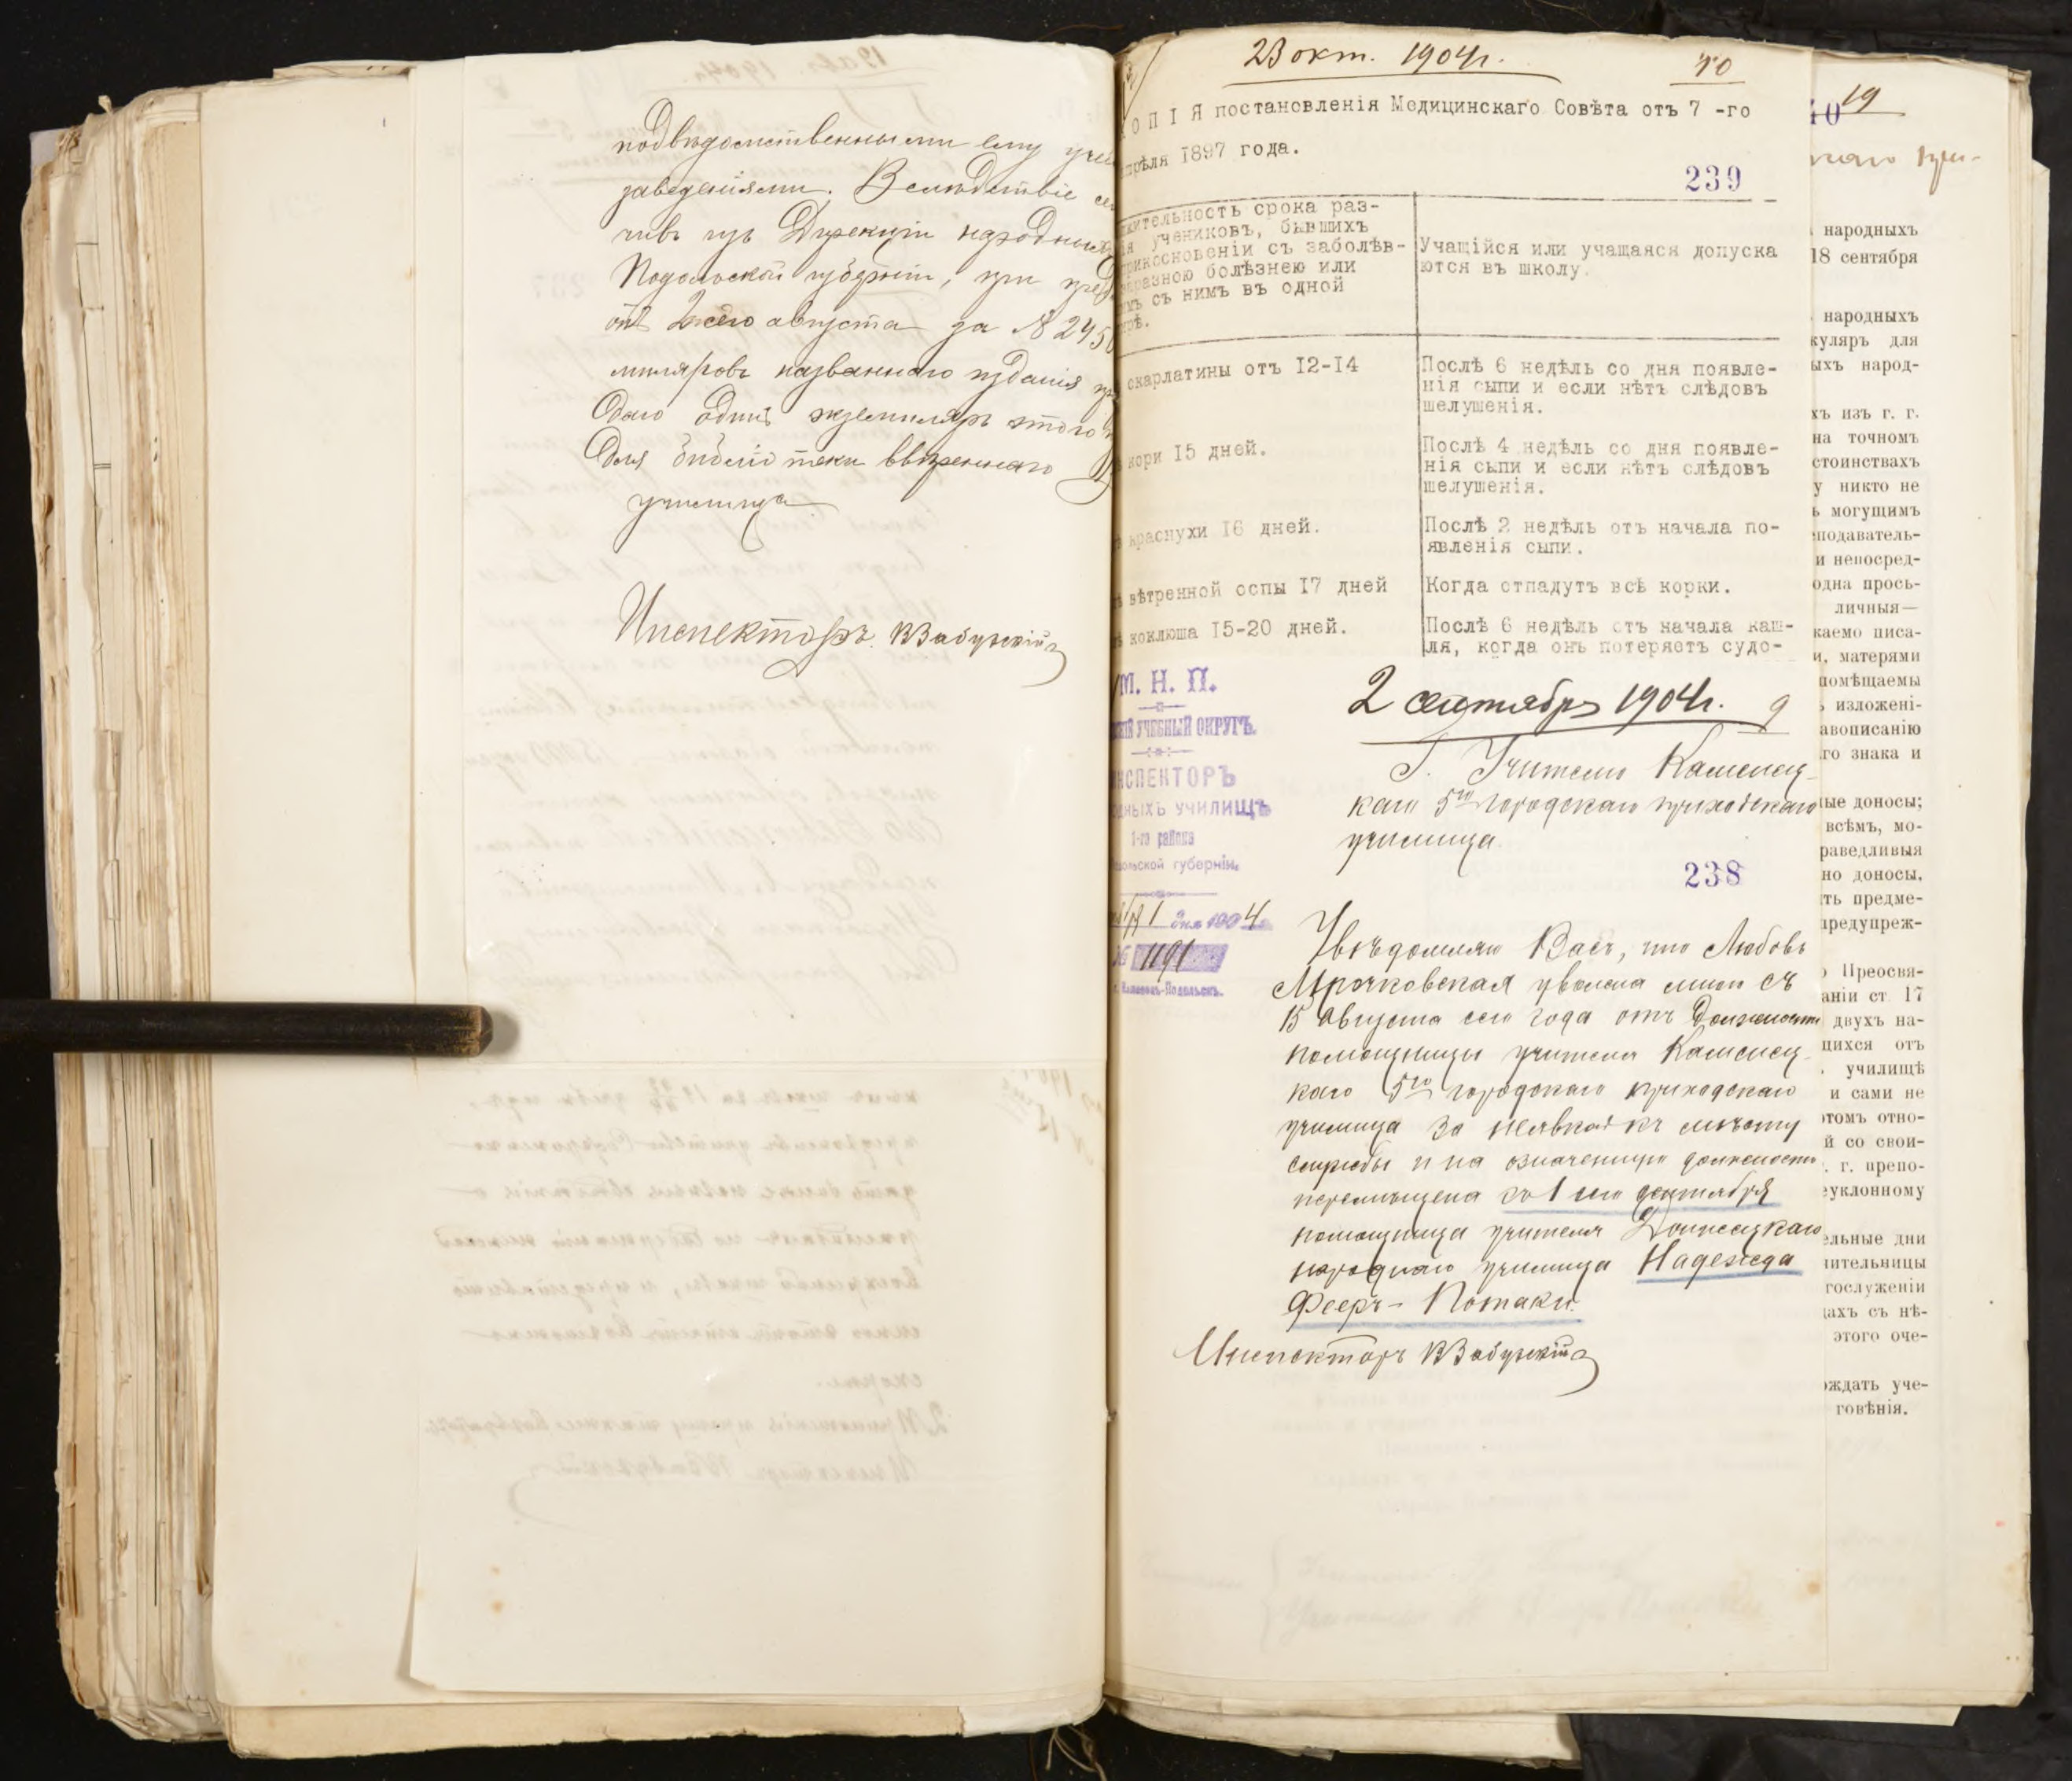 подведомственными ему
заведеніями. Вследствіе
чивъ изъ Дирекціи народныхъ
Подольской губерніи, при
отъ августа за № 2450
названнаго изданія
одинъ экземпляръ этого
для библіотеки ввереннаго
училища
Инспекторъ ВЗабужскій
23 окт. 1904г.
10
ОПІЯ постановленія Медицинскаго Совѣта отъ 7-го
прѣля 1897 года.
239
жительность срока раз-
ія учениковъ, бывшихъ
прикосновеніи съ заболѣв-
заразною болѣзнею или
имъ съ нимъ въ одной
Учащійся или учащаяся допуска
ются въ школу.
скарлатины отъ 12-14
Послѣ 6 недѣль со дня появле-
нія сыпи и если нѣтъ слѣдовъ
шелушенія.
кори 15 дней.
Послѣ 4 недѣль со дня появле-
нія сыпи и если нѣтъ слѣдовъ
шелушенія.
краснухи 16 дней.
Послѣ 2 недѣль отъ начала по-
явленія сыпи.
вѣтренной оспы 17 дней
Когда отпадутъ всѣ корки.
коклюша 15-20 дней.
Послѣ 6 недѣль отъ начала каш-
ля, когда онъ потеряетъ судо-
М. Н. П.
КІЙ УЧЕБНЫЙ ОКРУГЪ.
ИНСПЕКТОРЪ
ДНЫХЪ УЧИЛИЩЪ
1-го района
ольской губерніи.
1 дня 1904 г.
№ 1191
г. Каменецъ-Подольскъ.
2 сентября 1904г.
9
Г. Учителю Каменец-
каго 5го городскаго приходскаго
училища.
238
Увѣдомляю Васъ, что Любовь
Мрочковская уволена мною съ
15 Августа сего года отъ должности
помощницы учителя Каменец-
каго 5го городскаго приходскаго
училища за неявкой къ мѣсту
службы и на означенную должность
перемѣщена съ 1 сего сентября
помощница учителя
народнаго училища Надежда
Фееръ-Потаки.
Инспекторъ ВЗабужскій
19
народныхъ
18 сентября
народныхъ
куляръ для
ыхъ народ-
хъ изъ г. г.
на точномъ
стоинствахъ
у никто не
ь могущимъ
еподаватель-
и непосред-
одна прось-
личныя—
каемо писа-
и, матерями
помѣщаемы
ь изложені-
авописанію
го знака и
ые доносы;
всѣмъ, мо-
раведливыя
но доносы,
ть предме-
предупреж-
о Преосвя-
аніи ст. 17
двухъ на-
щихся отъ
училищѣ
и сами не
этомъ отно-
й со свои-
. г. препо-
еуклонному
ельные дни
ительницы
гослуженіи
дахъ съ нѣ-
этого оче-
ождать уче-
говѣнія.